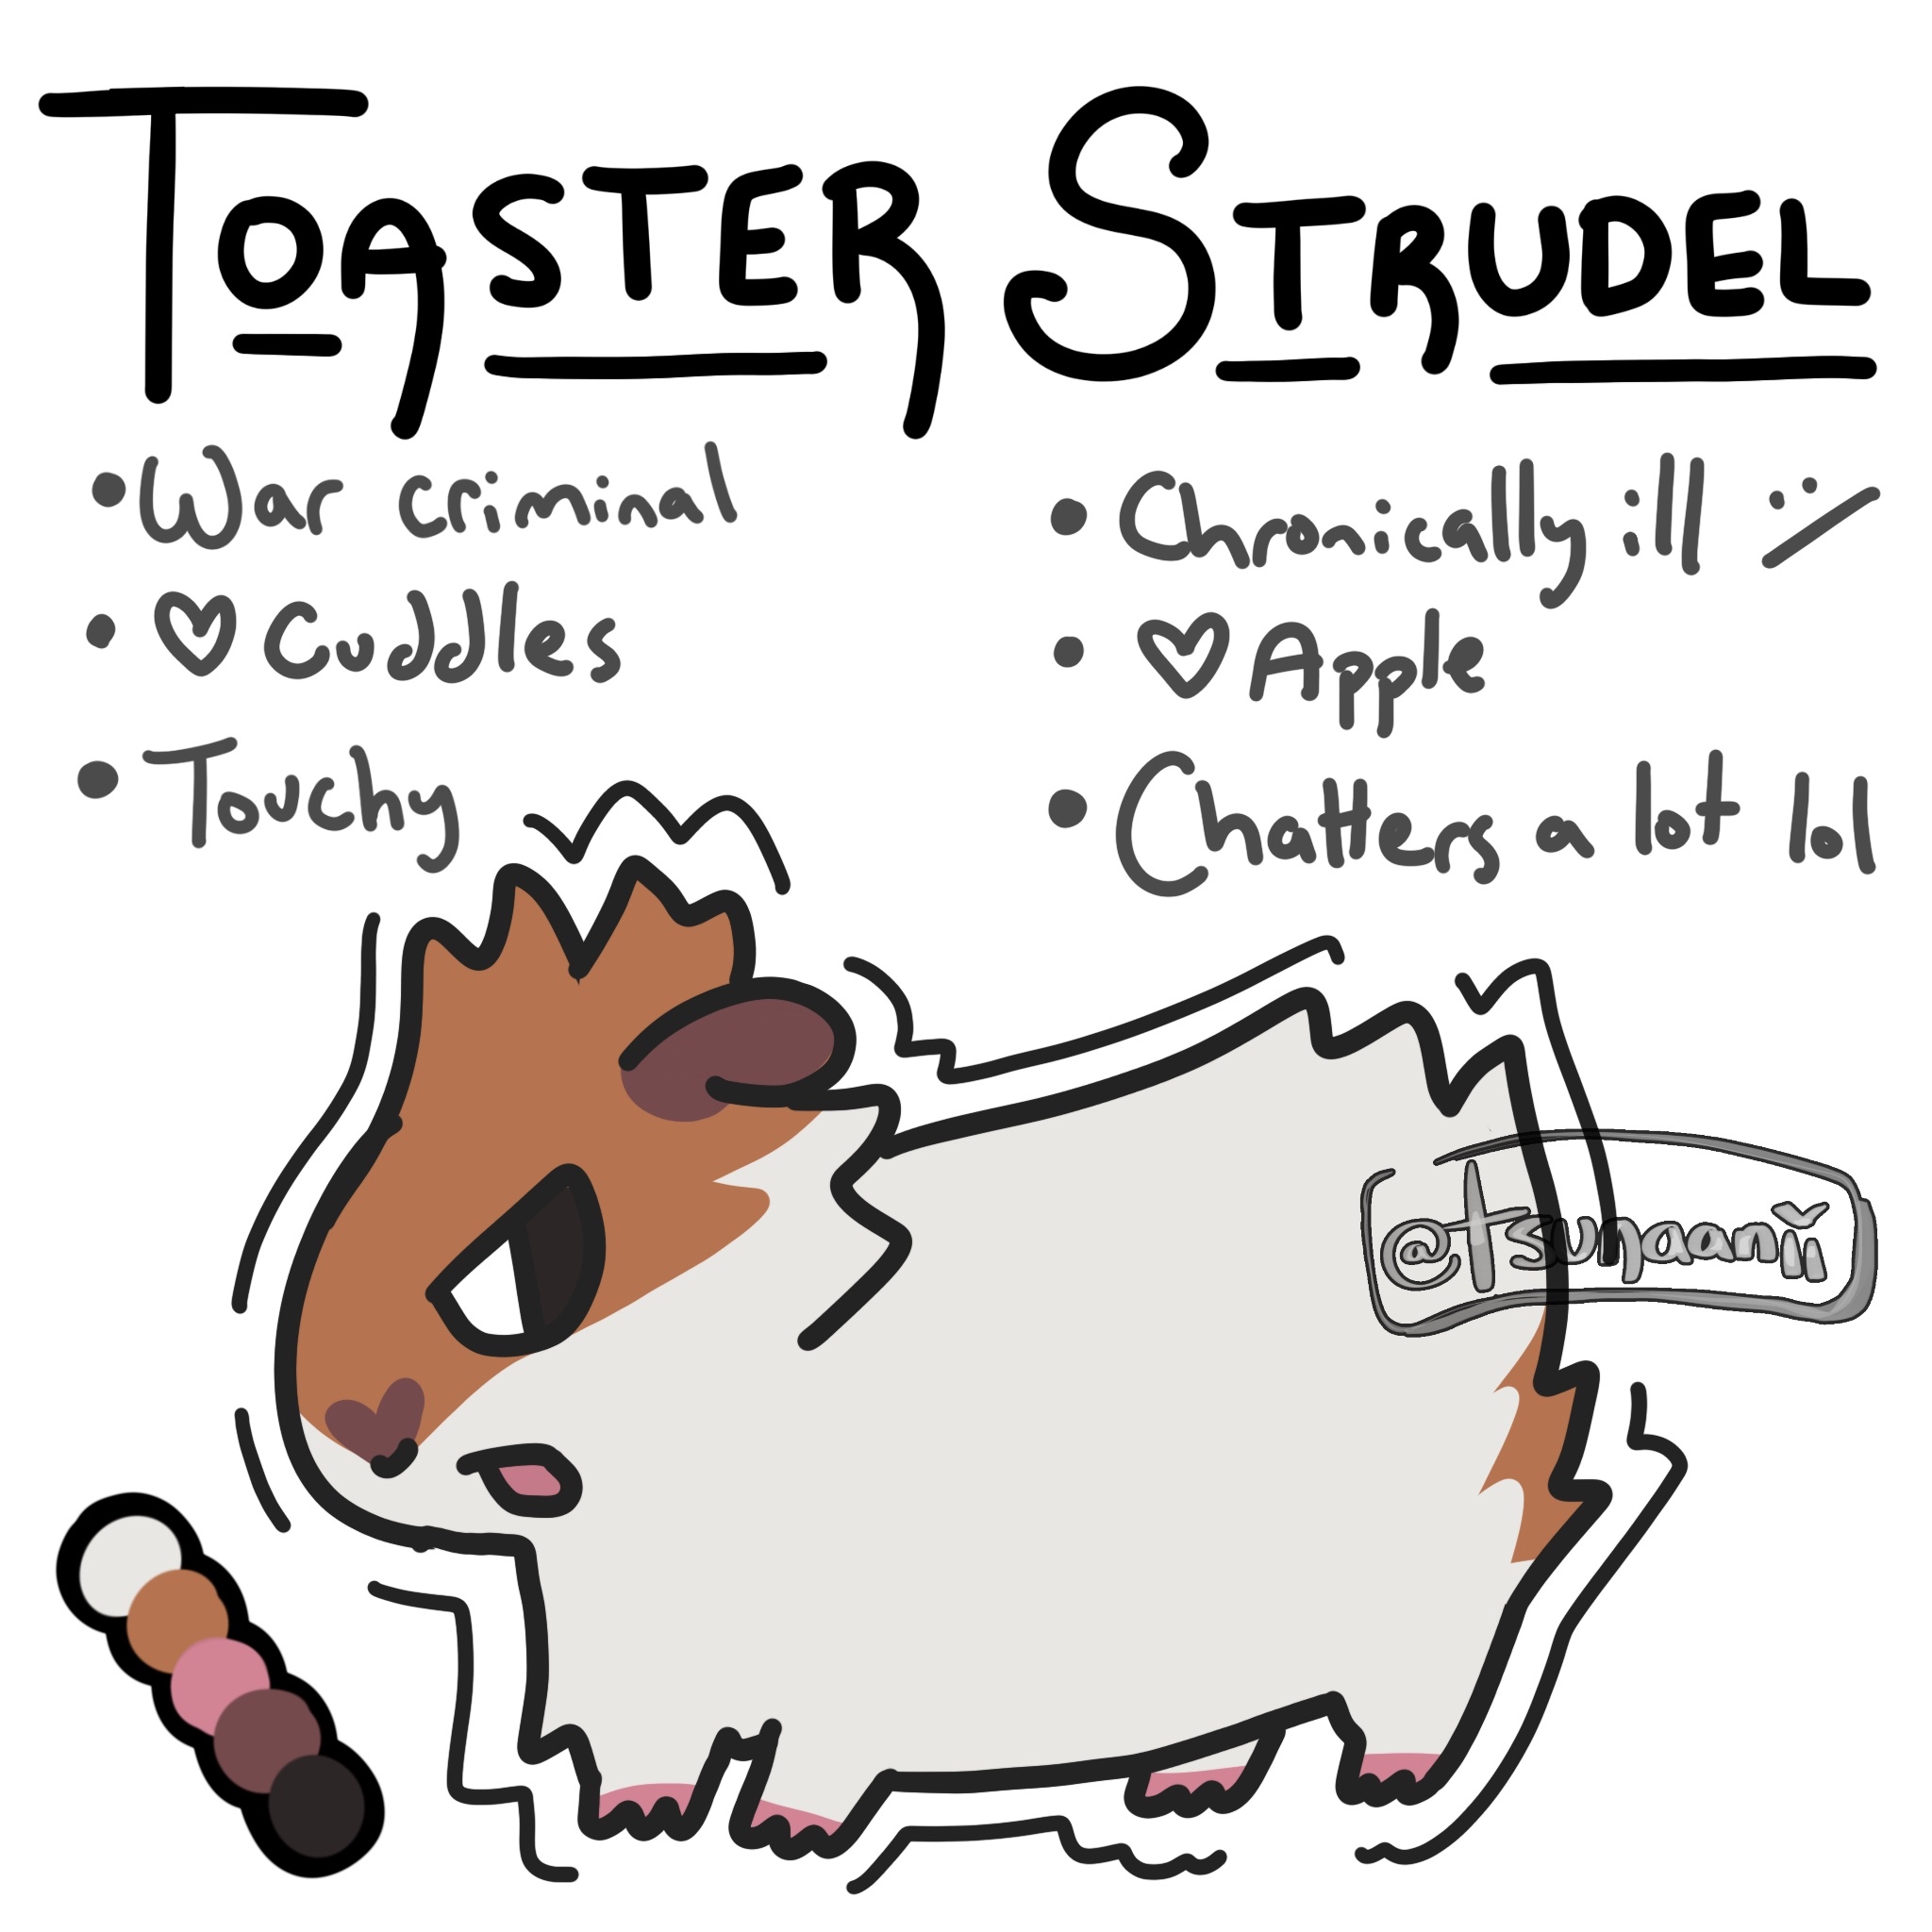 TOASTER STRUDEL
• War criminal
• ♡ Cuddles
• Touchy
• Chronically ill :/
• ♡ Apple
• Chatters a lot lol
@tsunaanii